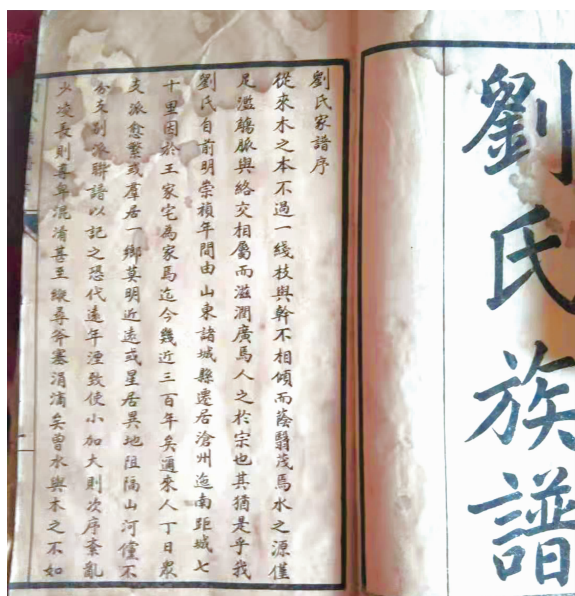 劉氏族譜
劉氏家譜序
從來木之本不過一綫枝與幹不相傾而蔭翳茂焉水之源僅
足濫觴脈與絡交相屬而滋潤廣焉人之於宗也其猶是乎我
劉氏自前明崇禎年間由山東諸城縣遷居滄州迤南距城七
十里因於王家宅為家焉迄今幾近三百年矣邇來人丁日眾
支派愈繁或羣居一鄉莫明近遠或星居異地阻隔山河僅不
分支別派聯譜以記之恐代遠年湮致使小加大則次序紊亂
少凌長則尊卑混淆甚至縱尋斧塞涓滴矣曾水與木之不如